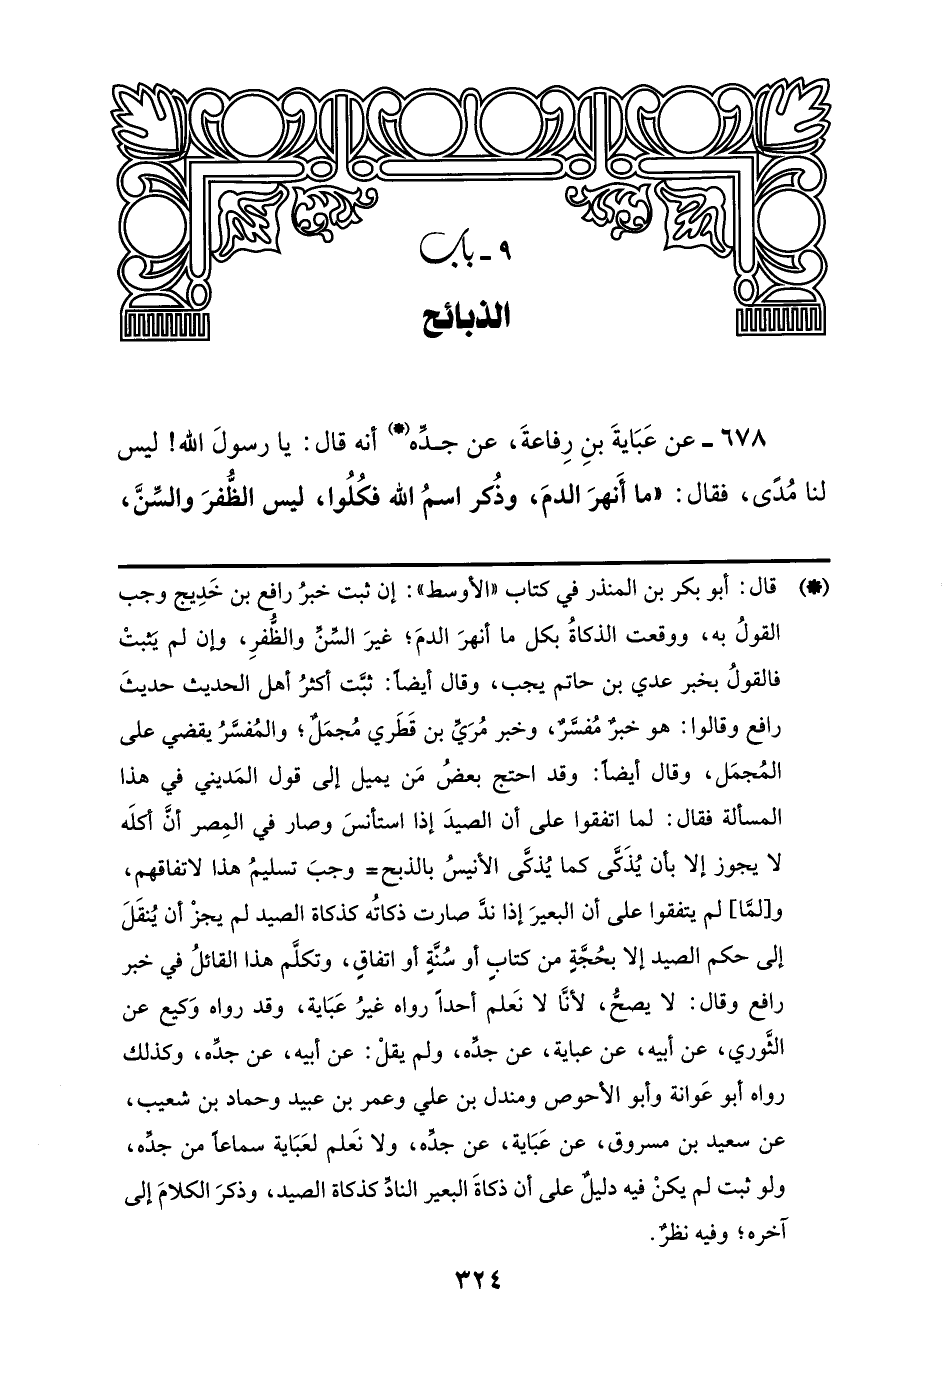 ٩ - باب
الذبائح
٦٧٨ - عن عَبَايةَ بنِ رِفاعةَ، عن جـدِّه(*) أنه قال: يا رسولَ الله! ليس
لنا مُدًى، فقال: «ما أَنهرَ الدمَ، وذُكر اسمُ الله فكُلُوا، ليس الظُّفرَ والسِّنَّ،
(*) قال: أبو بكر بن المنذر في كتاب «الأوسط»: إن ثبت خبرُ رافع بن خَدِيج وجب
القولُ به، ووقعت الذكاةُ بكل ما أنهرَ الدمَ؛ غيرَ السِّنِّ والظُّفرِ، وإن لم يَثبتْ
فالقولُ بخبر عدي بن حاتم يجب، وقال أيضاً: ثبَّت أكثرُ أهل الحديث حديثَ
رافع وقالوا: هو خبرٌ مُفسَّرٌ، وخبر مُرَيِّ بن قَطَري مُجمَلٌ؛ والمُفسَّرُ يقضي على
المُجمَل، وقال أيضاً: وقد احتج بعضُ مَن يميل إلى قول المَديني في هذا
المسألة فقال: لما اتفقوا على أن الصيدَ إذا استأنسَ وصار في المِصر أنَّ أكلَه
لا يجوز إلا بأن يُذَكَّى كما يُذكَّى الأنيسُ بالذبح= وجبَ تسليمُ هذا لاتفاقهم،
و[لمَّا] لم يتفقوا على أن البعيرَ إذا ندَّ صارت ذكاتُه كذكاة الصيد لم يجزْ أن يُنقَلَ
إلى حكم الصيد إلا بحُجَّةٍ من كتابٍ أو سُنَّةٍ أو اتفاقٍ، وتكلَّم هذا القائلُ في خبر
رافع وقال: لا يصحُّ، لأنَّا لا نَعلم أحداً رواه غيرُ عَبَاية، وقد رواه وَكيع عن
الثَّوري، عن أبيه، عن عباية، عن جدِّه، ولم يقلْ: عن أبيه، عن جدِّه، وكذلك
رواه أبو عَوانة وأبو الأحوص ومندل بن علي وعمر بن عبيد وحماد بن شعيب،
عن سعيد بن مسروق، عن عَبَاية، عن جدِّه، ولا نَعلم لعَبَاية سماعاً من جدِّه،
ولو ثبت لم يكنْ فيه دليلٌ على أن ذكاةَ البعير النادِّ كذكاة الصيد، وذكرَ الكلامَ إلى
آخره؛ وفيه نظرٌ.
٣٢٤